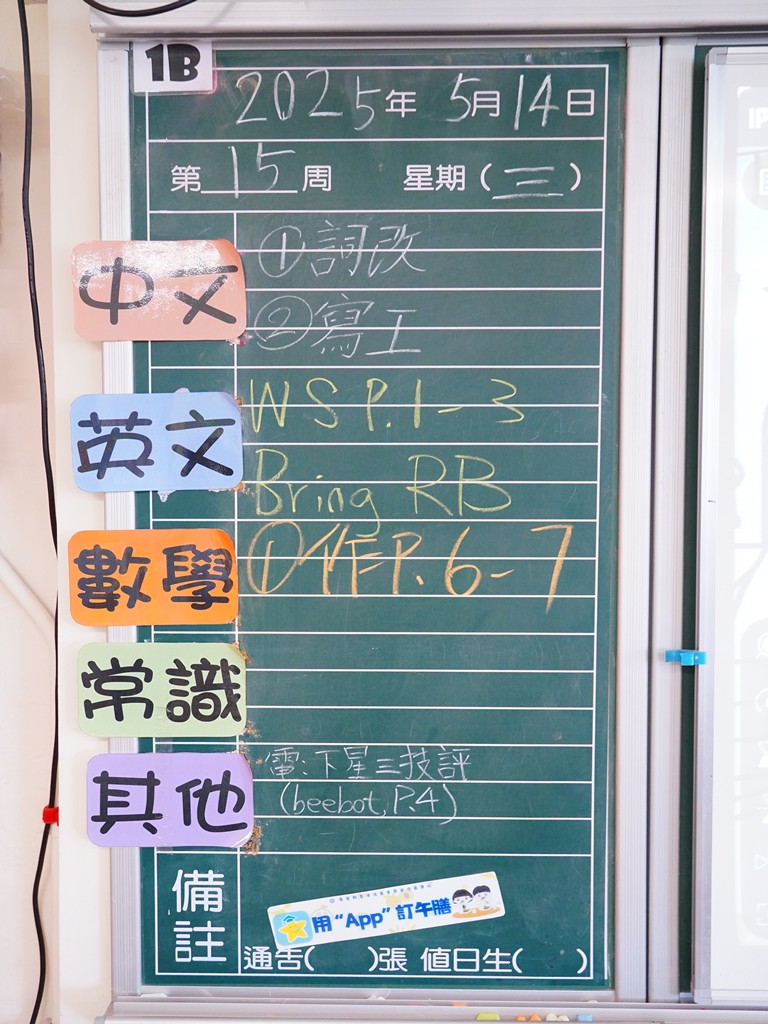 1B
2025年 5月14日
第15周 星期(三)
中文
①詞改
②寫工
英文
WS P.1-3
Bring RB
數學
①作P.6-7
常識
其他
電:下星三技評
(beebot, P.4)
備註
用“App”訂午膳
通告( )張 值日生( )